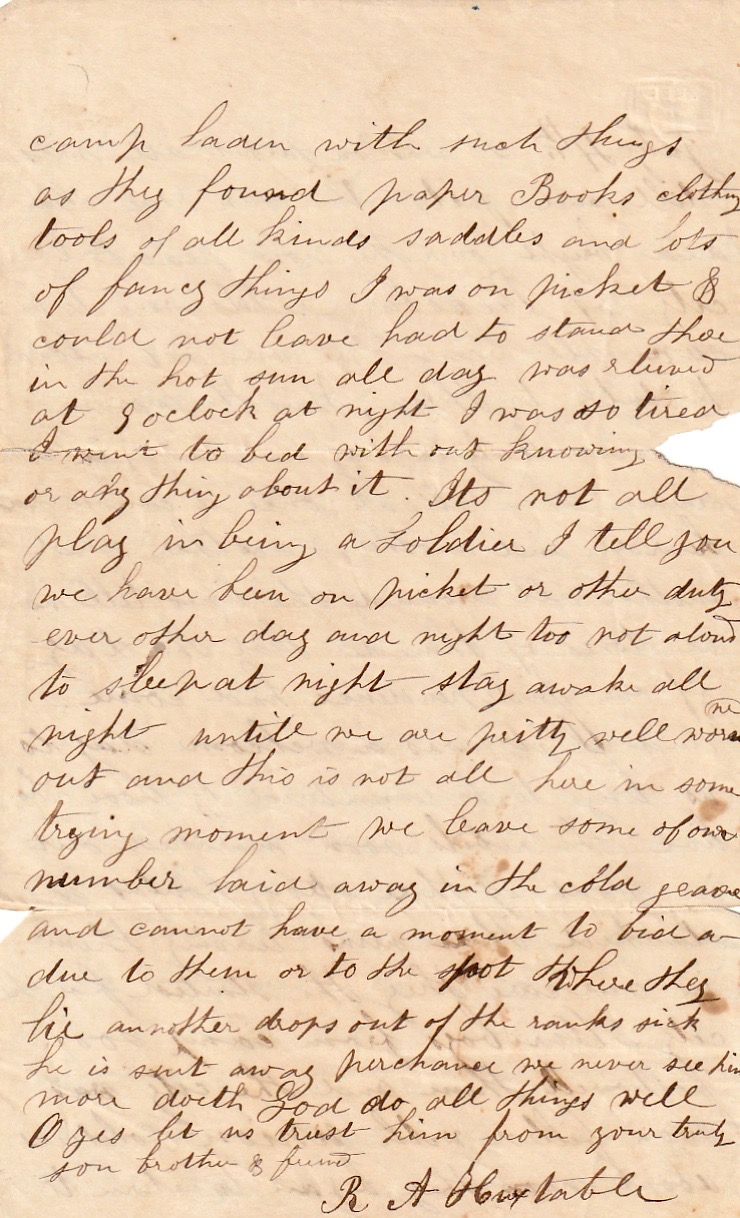 camp laden with such things
as they found paper Books clothing
tools of all kinds saddles and lots
of fancy things I was on picket &
could not leave had to stand there
in the hot sun all day was relieved
at 9 oclock at night I was so tired
I went to bed with out knowing
or any thing about it. Its not all
play in being a Soldier I tell you
we have been on picket or other duty
ever other day and night too not aloud
to sleep at night stay awake all
night untill we are pritty well worn
out and this is not all here in some
trying moment we leave some of our
number laid away in the cold grave
and cannot have a moment to bid a
due to them or to the spot Where they
lie annother drops out of the ranks sick
he is sent away perchance we never see him
more doeth God do all things well
O yes let us trust him from your truly
son brother & friend
R A Huxtable